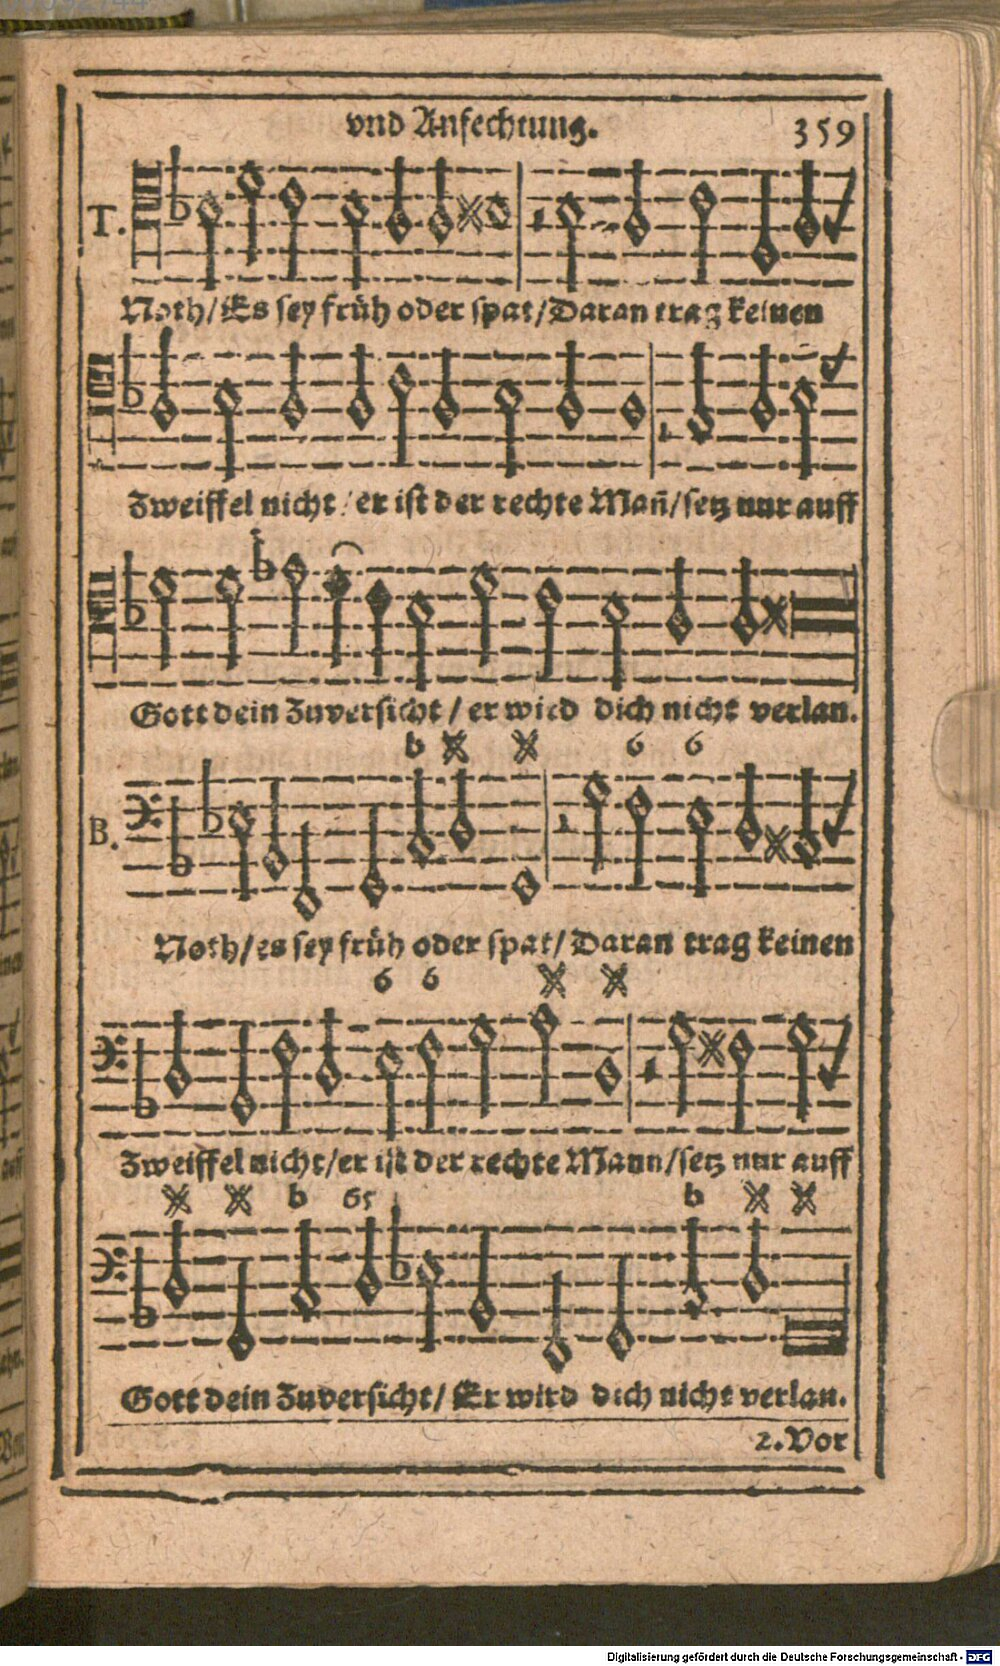 vnd Anfechtung. 359
T.
Noth/Es sey früh oder spat/Daran trag keinen
Zweiffel nicht/er ist der rechte Mañ/setz nur auff
Gott dein Zuversicht/er wird dich nicht verlan.
b 6 6
B.
Noth/es sey früh oder spat/Daran trag keinen
6 6
Zweiffel nicht/er ist der rechte Mann/setz nur auff
b 65 b
Gott dein Zuversicht/Er wird dich nicht verlan.
2. Vor
Digitalisierung gefördert durch die Deutsche Forschungsgemeinschaft - DFG